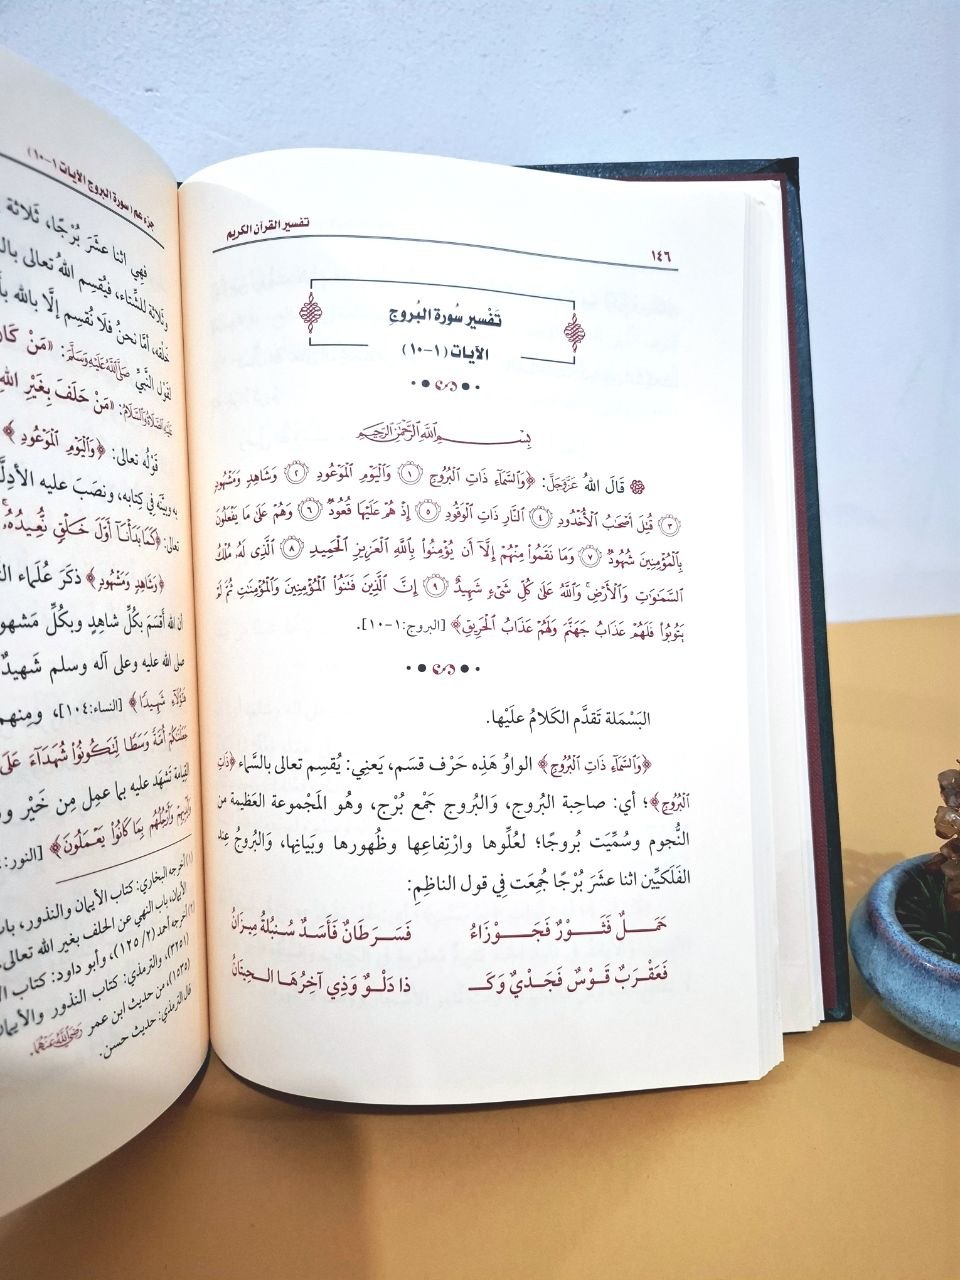 تفسير القرآن الكريم
١٤٦
تَفْسِير سُورة البُروجِ
الآيات (١-١٠)
بِسْمِ ٱللَّهِ ٱلرَّحْمَٰنِ ٱلرَّحِيمِ
قَالَ اللهُ عَزَّوَجَلَّ: ﴿وَٱلسَّمَآءِ ذَاتِ ٱلْبُرُوجِ ١ وَٱلْيَوْمِ ٱلْمَوْعُودِ ٢ وَشَاهِدٍ وَمَشْهُودٍ
٣ قُتِلَ أَصْحَٰبُ ٱلْأُخْدُودِ ٤ ٱلنَّارِ ذَاتِ ٱلْوَقُودِ ٥ إِذْ هُمْ عَلَيْهَا قُعُودٌ ٦ وَهُمْ عَلَىٰ مَا يَفْعَلُونَ
بِٱلْمُؤْمِنِينَ شُهُودٌ ٧ وَمَا نَقَمُوا۟ مِنْهُمْ إِلَّآ أَن يُؤْمِنُوا۟ بِٱللَّهِ ٱلْعَزِيزِ ٱلْحَمِيدِ ٨ ٱلَّذِى لَهُۥ مُلْكُ
ٱلسَّمَٰوَٰتِ وَٱلْأَرْضِ ۚ وَٱللَّهُ عَلَىٰ كُلِّ شَىْءٍ شَهِيدٌ ٩ إِنَّ ٱلَّذِينَ فَتَنُوا۟ ٱلْمُؤْمِنِينَ وَٱلْمُؤْمِنَٰتِ ثُمَّ لَمْ
يَتُوبُوا۟ فَلَهُمْ عَذَابُ جَهَنَّمَ وَلَهُمْ عَذَابُ ٱلْحَرِيقِ﴾ [البروج:١-١٠].
البَسْمَلة تَقدَّم الكَلامُ علَيْها.
﴿وَٱلسَّمَآءِ ذَاتِ ٱلْبُرُوجِ﴾ الواوُ هَذِه حَرْف قسَم، يَعنِي: يُقسِم تعالى بالسَّماء ﴿ذَاتِ
ٱلْبُرُوجِ﴾؛ أي: صاحِبة البُروج، والبُروج جَمْع بُرْج، وهُو المَجْموعة العَظيمة من
النُّجوم وسُمِّيَت بُروجًا؛ لعُلُوِّها وارْتِفاعِها وظُهورها وبَيانِها، والبُروجُ عِند
الفَلَكيِّين اثنا عشَرَ بُرْجًا جُمِعَت فِي قول الناظِمِ:
حَمَلٌ فَثَوْرٌ فَجَوْزَاءُ فَسَرَطَانٌ فَأَسَدٌ سُنْبُلَةُ مِيزَانُ
فَعَقْرَبٌ قَوْسٌ فَجَدْيٌ وَكَـ ذا دَلْوٌ وَذِي آخِرُهَا الـحِيتَانُ
جزء عم (سورة البروج الآيات ١-١٠)
فهِي اثنا عشَرَ بُرْجًا، ثَلاثة
وثَلاثة للشِّتاء، فيُقسِم اللهُ تعالى
خَلقه، أمَّا نحنُ فلا نُقسِم إلَّا بالله
لقول النَّبيِّ صَلَّىٰللَّهُعَلَيْهِوَسَلَّمَ: «مَنْ كَانَ
عَلَيْهِٱلصَّلَاةُوَٱلسَّلَامُ: «مَنْ حَلَفَ بِغَيْرِ اللهِ
قَوْلُه تعالى: ﴿وَٱلْيَوْمِ ٱلْمَوْعُودِ﴾
به وبيَّنه فِي كِتابه، ونصَبَ عليه الأدِلَّة
تعالى: ﴿كَمَا بَدَأْنَآ أَوَّلَ خَلْقٍ نُّعِيدُهُۥ
﴿وَشَاهِدٍ وَمَشْهُودٍ﴾ ذكَرَ عُلَماء
أن الله أقسَم بكُلِّ شاهِدٍ وبكُلِّ مَشهود
صلى الله عليه وعلى آله وسلم شَهيدٌ
هَٰٓؤُلَآءِ شَهِيدًا﴾ [النساء:٤١]، ومِنهم
جَعَلْنَٰكُمْ أُمَّةً وَسَطًا لِّتَكُونُوا۟ شُهَدَآءَ عَلَى
القِيامة تَشهَد عليه بما عمِل مِن خَيْر
وَأَيْدِيهِمْ وَأَرْجُلُهُم بِمَا كَانُوا۟ يَعْمَلُونَ﴾ [النور:
(١) أخرجه البخاري: كتاب الأيمان والنذور، باب
الأيمان، باب النهي عن الحلف بغير الله تعالى،
(٢) أخرجه أحمد (٢/ ١٢٥)، وأبو داود: كتاب
(٣٢٥١)، والترمذي: كتاب النذور والأيمان
(١٥٣٥)، من حديث ابن عمر رَضِيَٱللَّهُعَنْهُمَا.
قال الترمذي: حديث حسن.